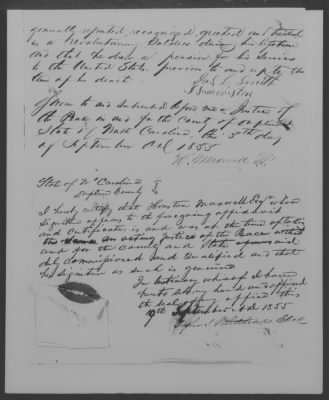 generally reputed, recognized, greeted and treated
as a Revolutionary Soldier during his lifetime
and that he drew a pension for his services
to the United States previous to and up to the
time of his death
Jas. L. Smith
Sworn to and Subscribed before me a Justice of
the Peace in and for the County of Duplin
State of North Carolina, the 8th day
of September A.D. 1855
State of No Carolina
Duplin County
I hereby certify that Houston Maxwell Esqr whose
signature appears to the foregoing affidavit
and certificate is and was at the time of
the same an acting Justice of the Peace
and for the County and State
duly Commissioned and Qualified and that
his signature as such is genuine
In testimony whereof I have
hereto set my hand and affixed
the seal of my office this
September A.D. 1855
Clerk